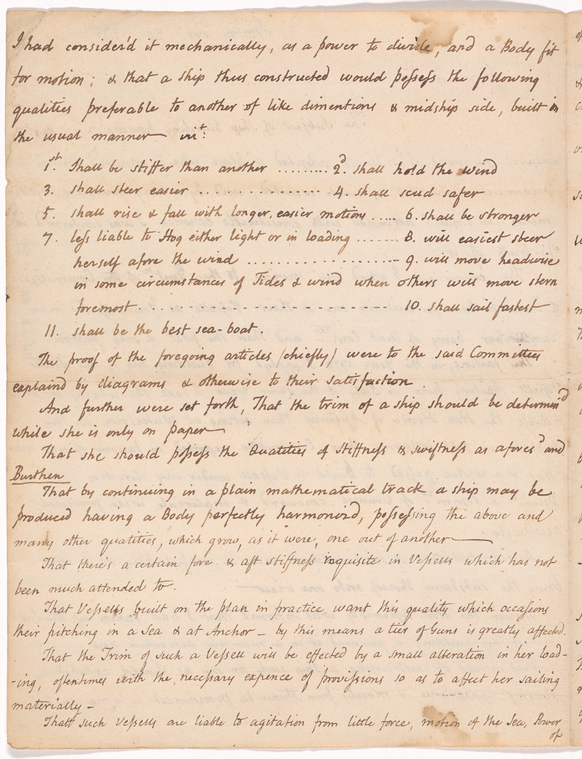 I had consider'd it mechanically, as a power to divide, and a Body fit
for motion; & that a ship thus constructed would possess the following
qualities preferable to another of like dimentions & midship side, built in
the usual manner vizt:
1st. Shall be stiffer than another ......... 2d. shall hold the wind
3. shall steer easier ............... 4. shall scud safer
5. shall rise & fall with longer, easier motions ..... 6. shall be stronger
7. less liable to Hog either light or in loading ....... 8. will easiest steer
herself afore the wind ................... 9. will move headwise
in some circumstances of Tides & wind when others will move stern
foremost. ........................ 10. shall sail fastest
11. shall be the best sea-boat.
The proof of the foregoing articles (chiefly) were to the said Committee
explaind by diagrams & otherwise to their satisfaction.
And further were set forth, That the trim of a ship should be determind
while she is only on paper
That she should possess the Quatities of Stiffness & swiftness as aforesd and
Burthen
That by continuing in a plain mathematical track a ship may be
produced having a Body perfectly harmoniz'd, possessing the above and
many other qualities, which grow, as it were, one out of another
That there's a certain fore & aft stiffness requisite in Vessells which has not
been much attended to.
That Vessells built on the plan in practice, want this quality which occasions
their pitching in a Sea & at Anchor _ by this means a tier of Guns is greatly affected.
That the Trim of such a Vessell will be effected by a small alteration in her load-
-ing, oftentimes with the necessary expence of provissions so as to affect her sailing
materially _
That such Vessells are liable to agitation from little force, motion of the Sea, Power
of